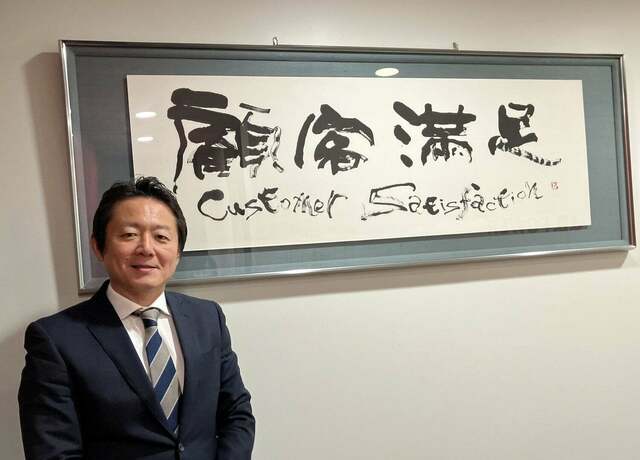 顧客満足
Customer Satisfaction